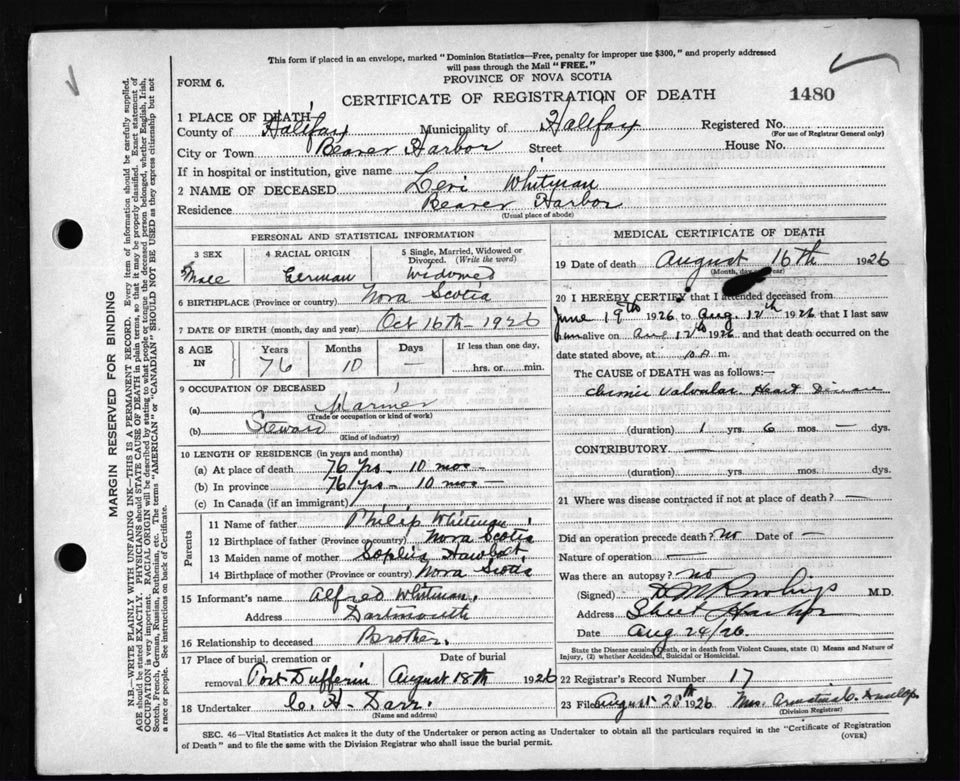 This form if placed in an envelope, marked "Dominion Statistics—Free, penalty for improper use $300," and properly addressed
will pass through the Mail "FREE."
FORM 6.
PROVINCE OF NOVA SCOTIA
CERTIFICATE OF REGISTRATION OF DEATH
1480
1 PLACE OF DEATH
County of Halifax Municipality of Halifax Registered No.
(For use of Registrar General only)
City or Town Beaver Harbor Street House No.
If in hospital or institution, give name
2 NAME OF DECEASED Levi Whitman
Residence Beaver Harbor
(Usual place of abode)
PERSONAL AND STATISTICAL INFORMATION
3 SEX 4 RACIAL ORIGIN 5 Single, Married, Widowed or
Divorced. (Write the word)
Male German Widowed
6 BIRTHPLACE (Province or country) Nova Scotia
7 DATE OF BIRTH (month, day and year) Oct 16th - 1926
8 AGE IN Years Months Days If less than one day,
76 10 — hrs. or min.
9 OCCUPATION OF DECEASED
(a) Mariner
(Trade or occupation or kind of work)
(b) Steward
(Kind of industry)
10 LENGTH OF RESIDENCE (in years and months)
(a) At place of death 76 yrs - 10 mos -
(b) In province 76 yrs - 10 mos -
(c) In Canada (if an immigrant)
Parents
11 Name of father Philip Whitman
12 Birthplace of father (Province or country) Nova Scotia
13 Maiden name of mother Sophia
14 Birthplace of mother (Province or country) Nova Scotia
15 Informant's name Alfred Whitman
Address Dartmouth
16 Relationship to deceased Brother.
17 Place of burial, cremation or Date of burial
removal Port Dufferin August 18th 1926
18 Undertaker C. H.
(Name and address)
MEDICAL CERTIFICATE OF DEATH
19 Date of death August 16th 1926
(Month, day and year)
20 I HEREBY CERTIFY that I attended deceased from
June 19th 1926 to Aug. 12th 1926 that I last saw
him alive on Aug 12th 1926 and that death occurred on the
date stated above, at 10 A. m.
The CAUSE of DEATH was as follows:—
Chronic Valvular Heart Disease
(duration) 1 yrs. 6 mos. — dys.
CONTRIBUTORY. —
(duration) yrs. mos. dys.
21 Where was disease contracted if not at place of death? —
Did an operation precede death? No Date of —
Nature of operation —
Was there an autopsy? no
(Signed) M.D.
Address Sheet Harbor
Date Aug 24/26.
State the Disease causing Death, or in death from Violent Causes, state (1) Means and Nature of
Injury, (2) whether Accidental, Suicidal or Homicidal.
22 Registrar's Record Number 17
23 Filed August 25th 1926 Mrs. Dunlop
(Division Registrar)
SEC. 46—Vital Statistics Act makes it the duty of the Undertaker or person acting as Undertaker to obtain all the particulars required in the "Certificate of Registration
of Death" and to file the same with the Division Registrar who shall issue the burial permit.
(OVER)
MARGIN RESERVED FOR BINDING
N.B.—WRITE PLAINLY WITH UNFADING INK—THIS IS A PERMANENT RECORD. Every item of information should be carefully supplied.
AGE should be stated EXACTLY. PHYSICIANS should STATE CAUSE OF DEATH in plain terms, so that it may be properly classified. Exact statement of
OCCUPATION is very important. RACIAL ORIGIN will be described by stating to what people or tongue the deceased person belonged, whether English, Irish,
Scotch, French, German, Russian, Ruthenian, etc. The terms "AMERICAN" or "CANADIAN" SHOULD NOT BE USED as they express citizenship but not
a race or people. See instructions on back of Certificate.